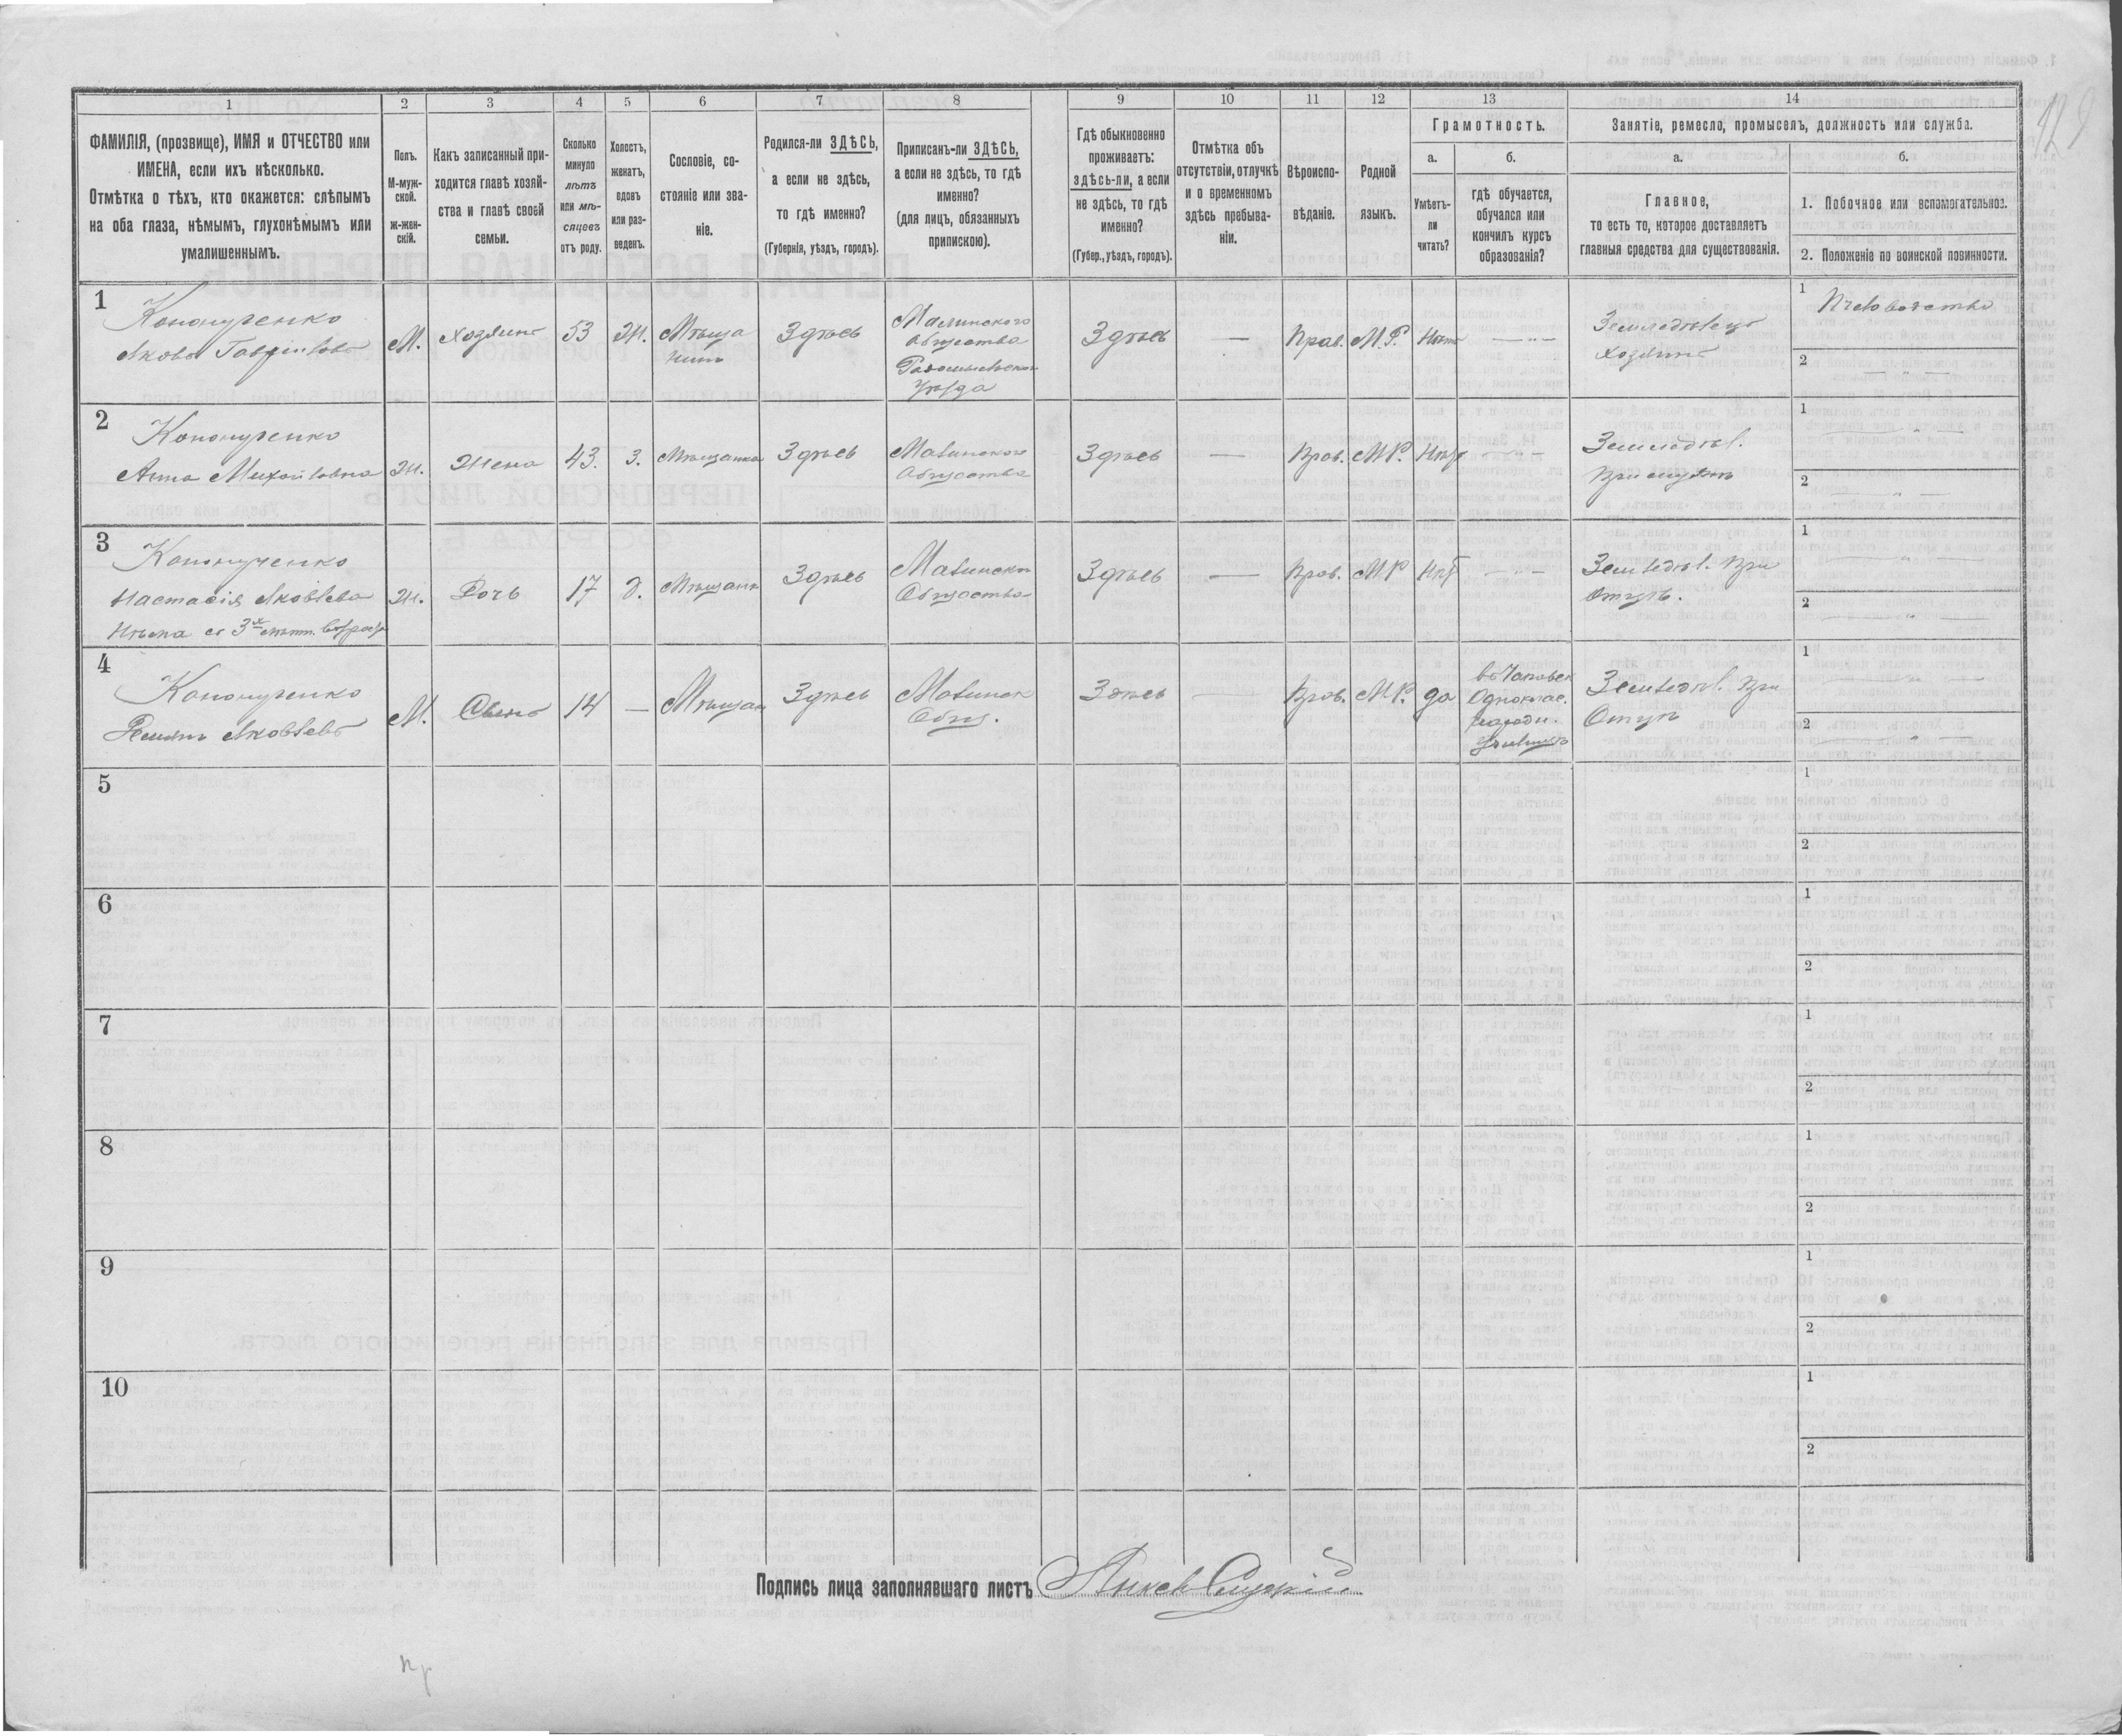 1 2 3 4 5 6 7 8 9 10 11 12 13 14
ФАМИЛІЯ, (прозвище), ИМЯ и ОТЧЕСТВО или
ИМЕНА, если ихъ нѣсколько.
Отмѣтка о тѣхъ, кто окажется: слѣпымъ
на оба глаза, нѣмымъ, глухонѣмымъ или
умалишеннымъ.
Полъ.
М-муж-
ской.
ж-жен-
скій.
Какъ записанный при-
ходится главѣ хозяй-
ства и главѣ своей
семьи.
Сколько
минуло
лѣтъ
или мѣ-
сяцевъ
отъ роду.
Холостъ,
женатъ,
вдовъ
или раз-
веденъ.
Сословіе, со-
стояніе или зва-
ніе.
Родился-ли ЗДѢСЬ,
а если не здѣсь,
то гдѣ именно?
(Губернія, уѣздъ, городъ).
Приписанъ-ли ЗДѢСЬ,
а если не здѣсь, то гдѣ
именно?
(для лицъ, обязанныхъ
припискою).
Гдѣ обыкновенно
проживаетъ:
здѣсь-ли, а если
не здѣсь, то гдѣ
именно?
(Губер., уѣздъ, городъ).
Отмѣтка объ
отсутствіи, отлучкѣ
и о временномъ
здѣсь пребыва-
ніи.
Вѣроиспо-
вѣданіе.
Родной
языкъ.
Грамотность.
а.
Умѣетъ-
ли
читать?
б.
гдѣ обучается,
обучался или
кончилъ курсъ
образованія?
Занятіе, ремесло, промыселъ, должность или служба.
а.
Главное,
то есть то, которое доставляетъ
главныя средства для существованія.
б.
1. Побочное или вспомогательное.
2. Положеніе по воинской повинности.
1
Кононученко
Яковъ Гавриловъ
М.
Хозяинъ
53
Ж.
Мѣща
нинъ
Здѣсь
Малинского
Общества
Радомысльского
Уѣзда
Здѣсь
—
Прав.
М.Р.
Нѣтъ
— " —
Земледѣлецъ
хозяинъ
1
Пчеловодство
2
— " —
2
Кононученко
Анна Михайловна
Ж.
Жена
43.
З.
Мѣщанка
Здѣсь
Малинского
Общества
Здѣсь
—
Прав.
М.Р.
Нѣт
— " —
Земледѣл.
При мужѣ
1
— " —
2
— " —
3
Кононученко
Настасія Яковлева
Нѣма съ 3х лѣтн. возраста
Ж.
Дочь
17
д.
Мѣщанк
Здѣсь
Малинског
Общества
Здѣсь
—
Прав.
М.Р
Нѣт
— " —
Земледѣл. При
Отцѣ.
1
— " —
2
— " —
4
Кононученко
Яковлевъ
М.
Сынъ
14
—
Мѣщан
Здѣсь
Малинск
Общ.
Здѣсь
—
Прав.
М.Р.
да
Одноклас.
народн.
училищѣ
Земледѣл. При
Отцѣ
1
— " —
2
— " —
5
1
2
6
1
2
7
1
2
8
1
2
9
1
2
10
1
2
Подпись лица заполнявшаго листъ